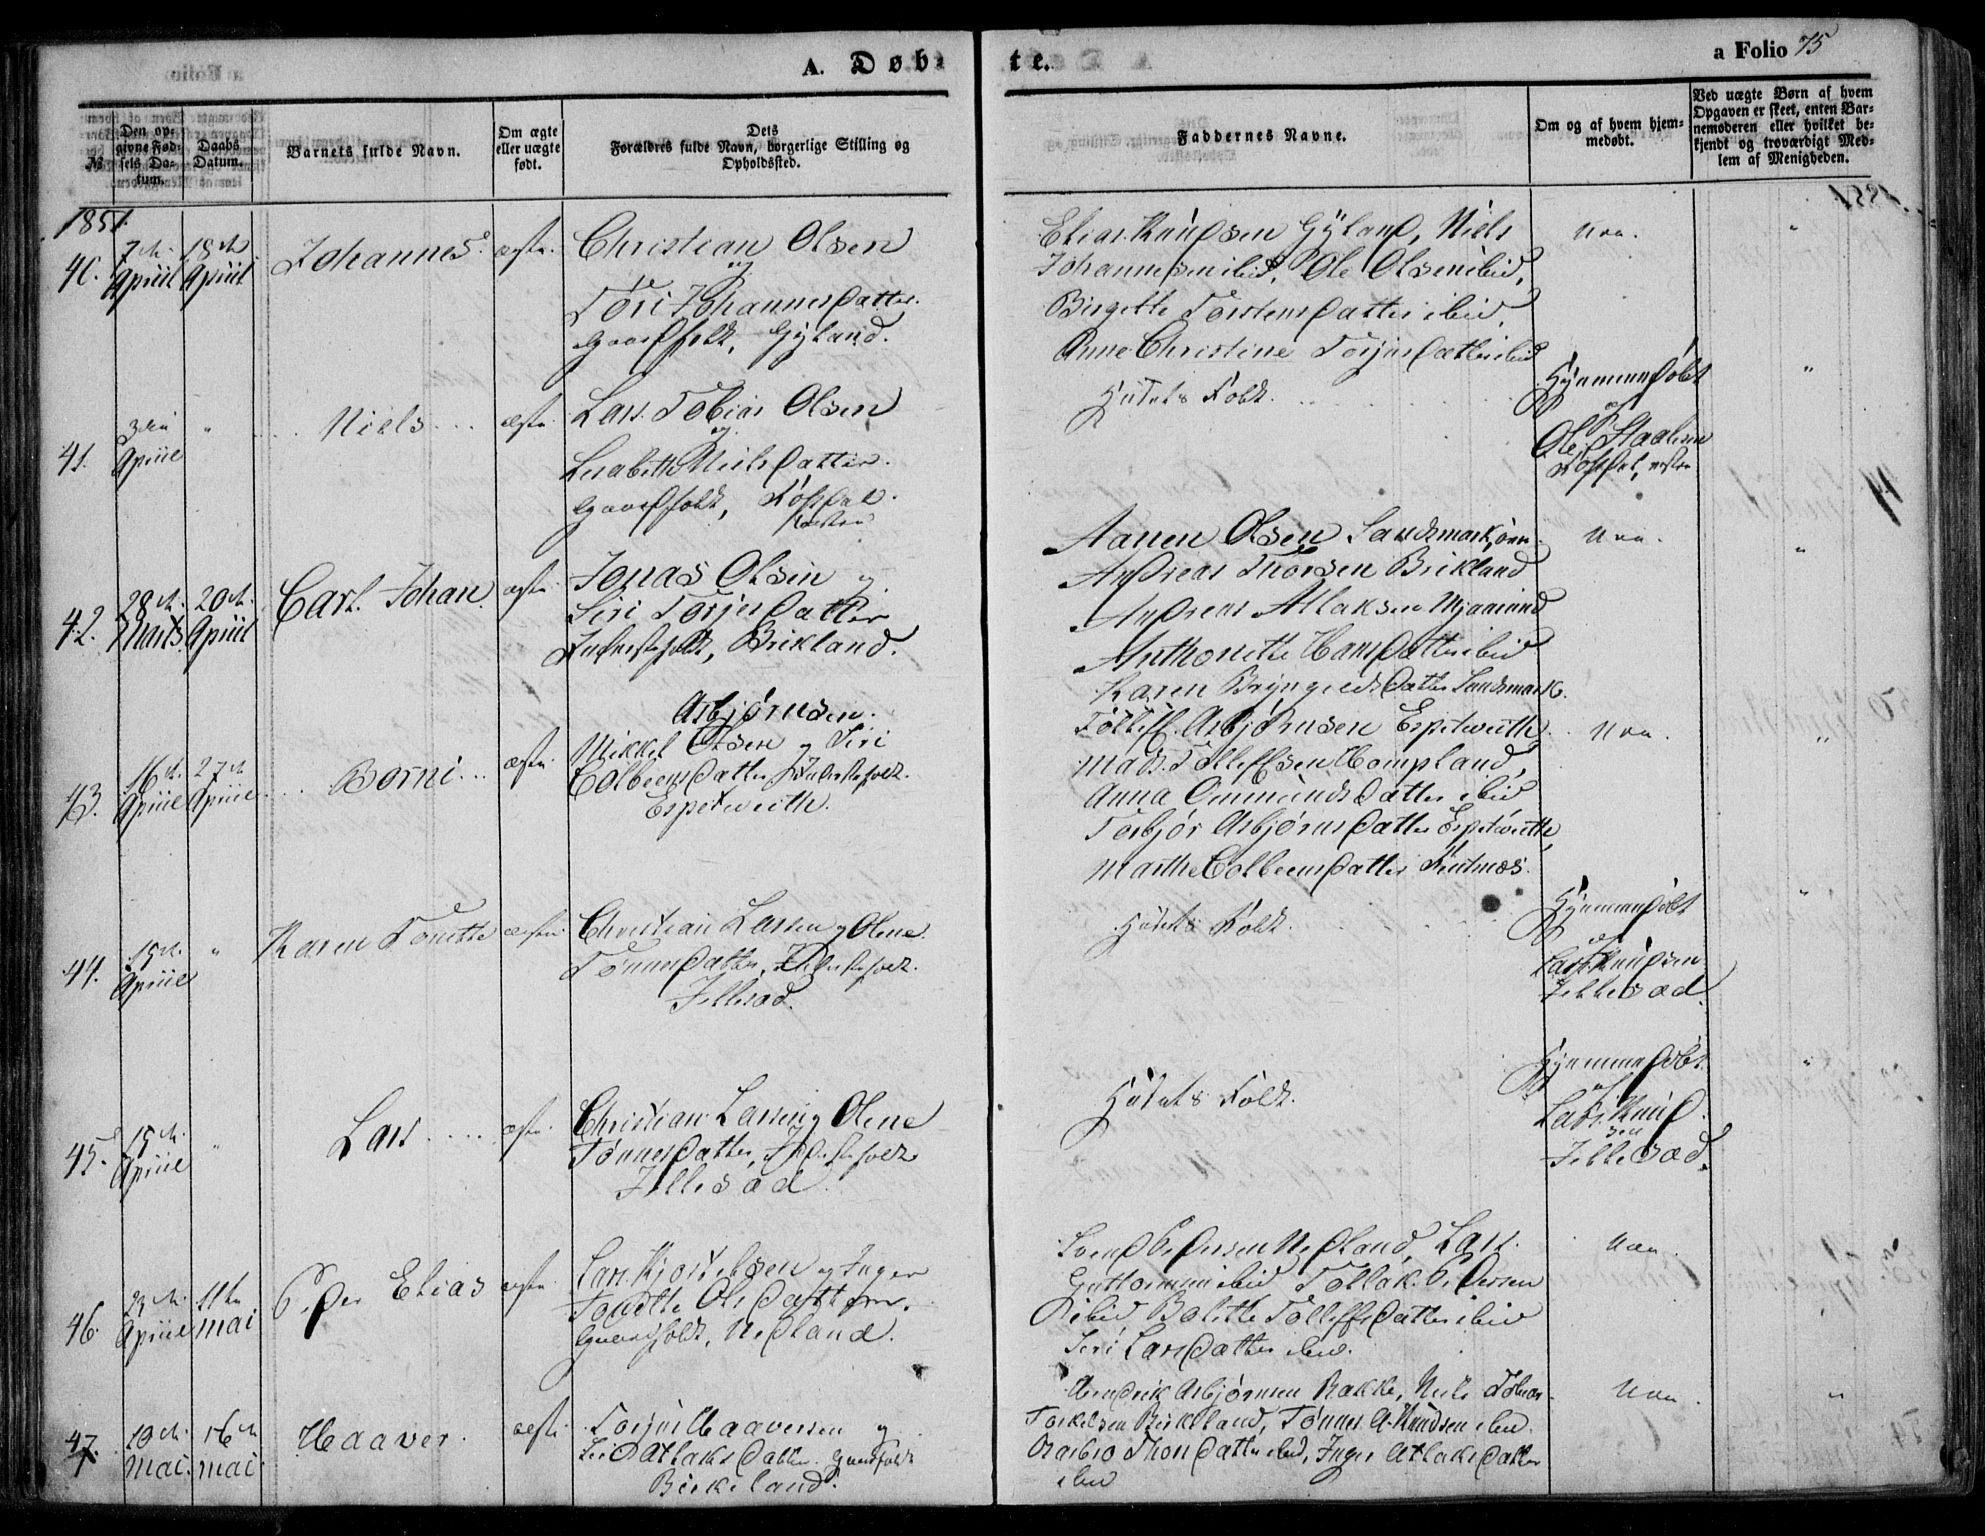 A. Døbte.
a Folio 75
№
Den opgivne Fødsels Datum.
Daabs Datum.
Barnets fulde Navn.
Om ægte eller uægte født.
Dets Forældres fulde Navn, borgerlige Stilling og Opholdssted.
Faddernes Navne.
Om og af hvem hjemmedøbt.
Ved uægte Børn af hvem Opgaven er skeet, enten Barnemoderen eller hvilket bekjendt og troværdigt Medlem af Menigheden.
1851.
40.
7de April
18de April
Johannes
ægte.
Christian Olsen
og
Tori Johannesdatter.
Gaardfolk, Gyland.
Elias Knudsen Gyland, Niels
Johannesen ibid, Ole Olsen ibid,
Birgette Torstensdatter ibid,
Anne Christine Torjusdatter ibid
Nei.
"
41.
3die April
"
Niels
ægte.
Lars Tobias Olsen
og
Lisabeth Nielsdatter.
Gaardfolk, Fosdal
vestre
Husets Folk.
Hjemmedøbt
af
Ole Staalesen
Fosdal, vestre
"
42.
28de Marts
20de April
Carl Johan
ægte.
Jonas Olsen og
Siri Torjusdatter
Inderstfolk, Birkland.
Aanen Olsen Sandsmark, øvre
Andreas Thorsen Birkland
Andreas Atlaksen Mjaasund
Anthonette Hansdatter ibid
Karen Bryngeldsdatter Sandsmark.
Nei.
"
43.
16de April
27de April
Borni
ægte.
Asbjørnsen.
Mikkel Olsen og Siri
Colbeensdatter Inderstfolk.
Espetweith.
Tollef Asbjørnsen Espetweith
Mads Tollefsen Hompland,
Anna Ommundsdatter ibid
Torbjør Asbjørnsdatter Espetweith,
Marthe Colbeensdatter Rentnæs.
Nei.
"
44.
15de April
"
Karen Tonette
ægte.
Christian Larsen og Olene
Tønnesdatter, Inderstfolk.
Jellesad.
Husets Folk.
Hjemmedøbt
af
Lars Knudsen
Jellesad.
"
45.
15de April
"
Lars
ægte.
Christian Larsen og Olene
Tønnesdatter, Inderstfolk
Jellesad.
Husets Folk.
Hjemmedøbt
af
Lars Knud
sen
Jellesad.
"
46.
23de April
11te Mai
Peder Elias
ægte.
Lars Kjostelsen og Inger
Tonette Olsdatter.
Gaardfolk, Nedland.
Svend Pedersen Nedland, Lars
Guttormsen ibid Tollak Pedersen
ibid Bolette Tollefsdatter ibid
Siri Larsdatter ibid.
Nei.
"
47.
10de Mai
16de Mai
Haaver
ægte.
Torjus Haaversen og
Siri Atlaksdatter. Gaardfolk
Birkeland.
Hendrik Asbjørnsen Bakke, Niels Tobias
Torkelsen Birkeland, Tønnes A. Knudsen ibid.
Barbro Thorsdatter ibid, Inger Atlaksdatter
ibid
Nei
"